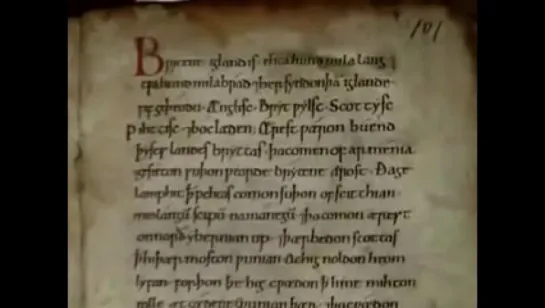 101
Brytene igland is ehta hund mila lang
⁊ tpa hund mila brad ⁊ her syndon on þā iglande
fif geþeodu · Ænglisc · Bryt pylsc · Scottysc
pihttisc · ⁊ boc leden · Ærest pæron buend
þyses landes bryttas · þa comon of armenia
⁊ gesæton suþon pearde brytene ærost · Þa ge
lamp hit þ pehtas comon suþon of scithian ·
mid langū scipū na manegū · ⁊ þa comon ærest
on norð ybernian up · ⁊ þær bedon scottas
þ hi þær moston punian · Ac hig noldon heom
lyfan · forþon þe hig cpædon þ hi ne mihton
ealle æt gædere punian þær